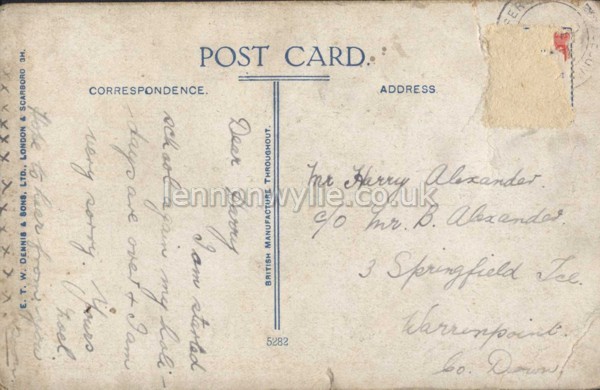 POST CARD.
CORRESPONDENCE.
ADDRESS.
Dear Harry
I am started
school again my holi-
days are over & I am
very sorry. Yours
Noel
Like to hear from you
x x x x x x x x x
E. T. W. DENNIS & SONS, LTD., LONDON & SCARBORO
BRITISH MANUFACTURE THROUGHOUT.
5282
Mr Harry Alexander.
c/o Mr. B. Alexander.
3 Springfield Tce.
Warrenpoint.
Co. Down
Lennonwylie.co.uk